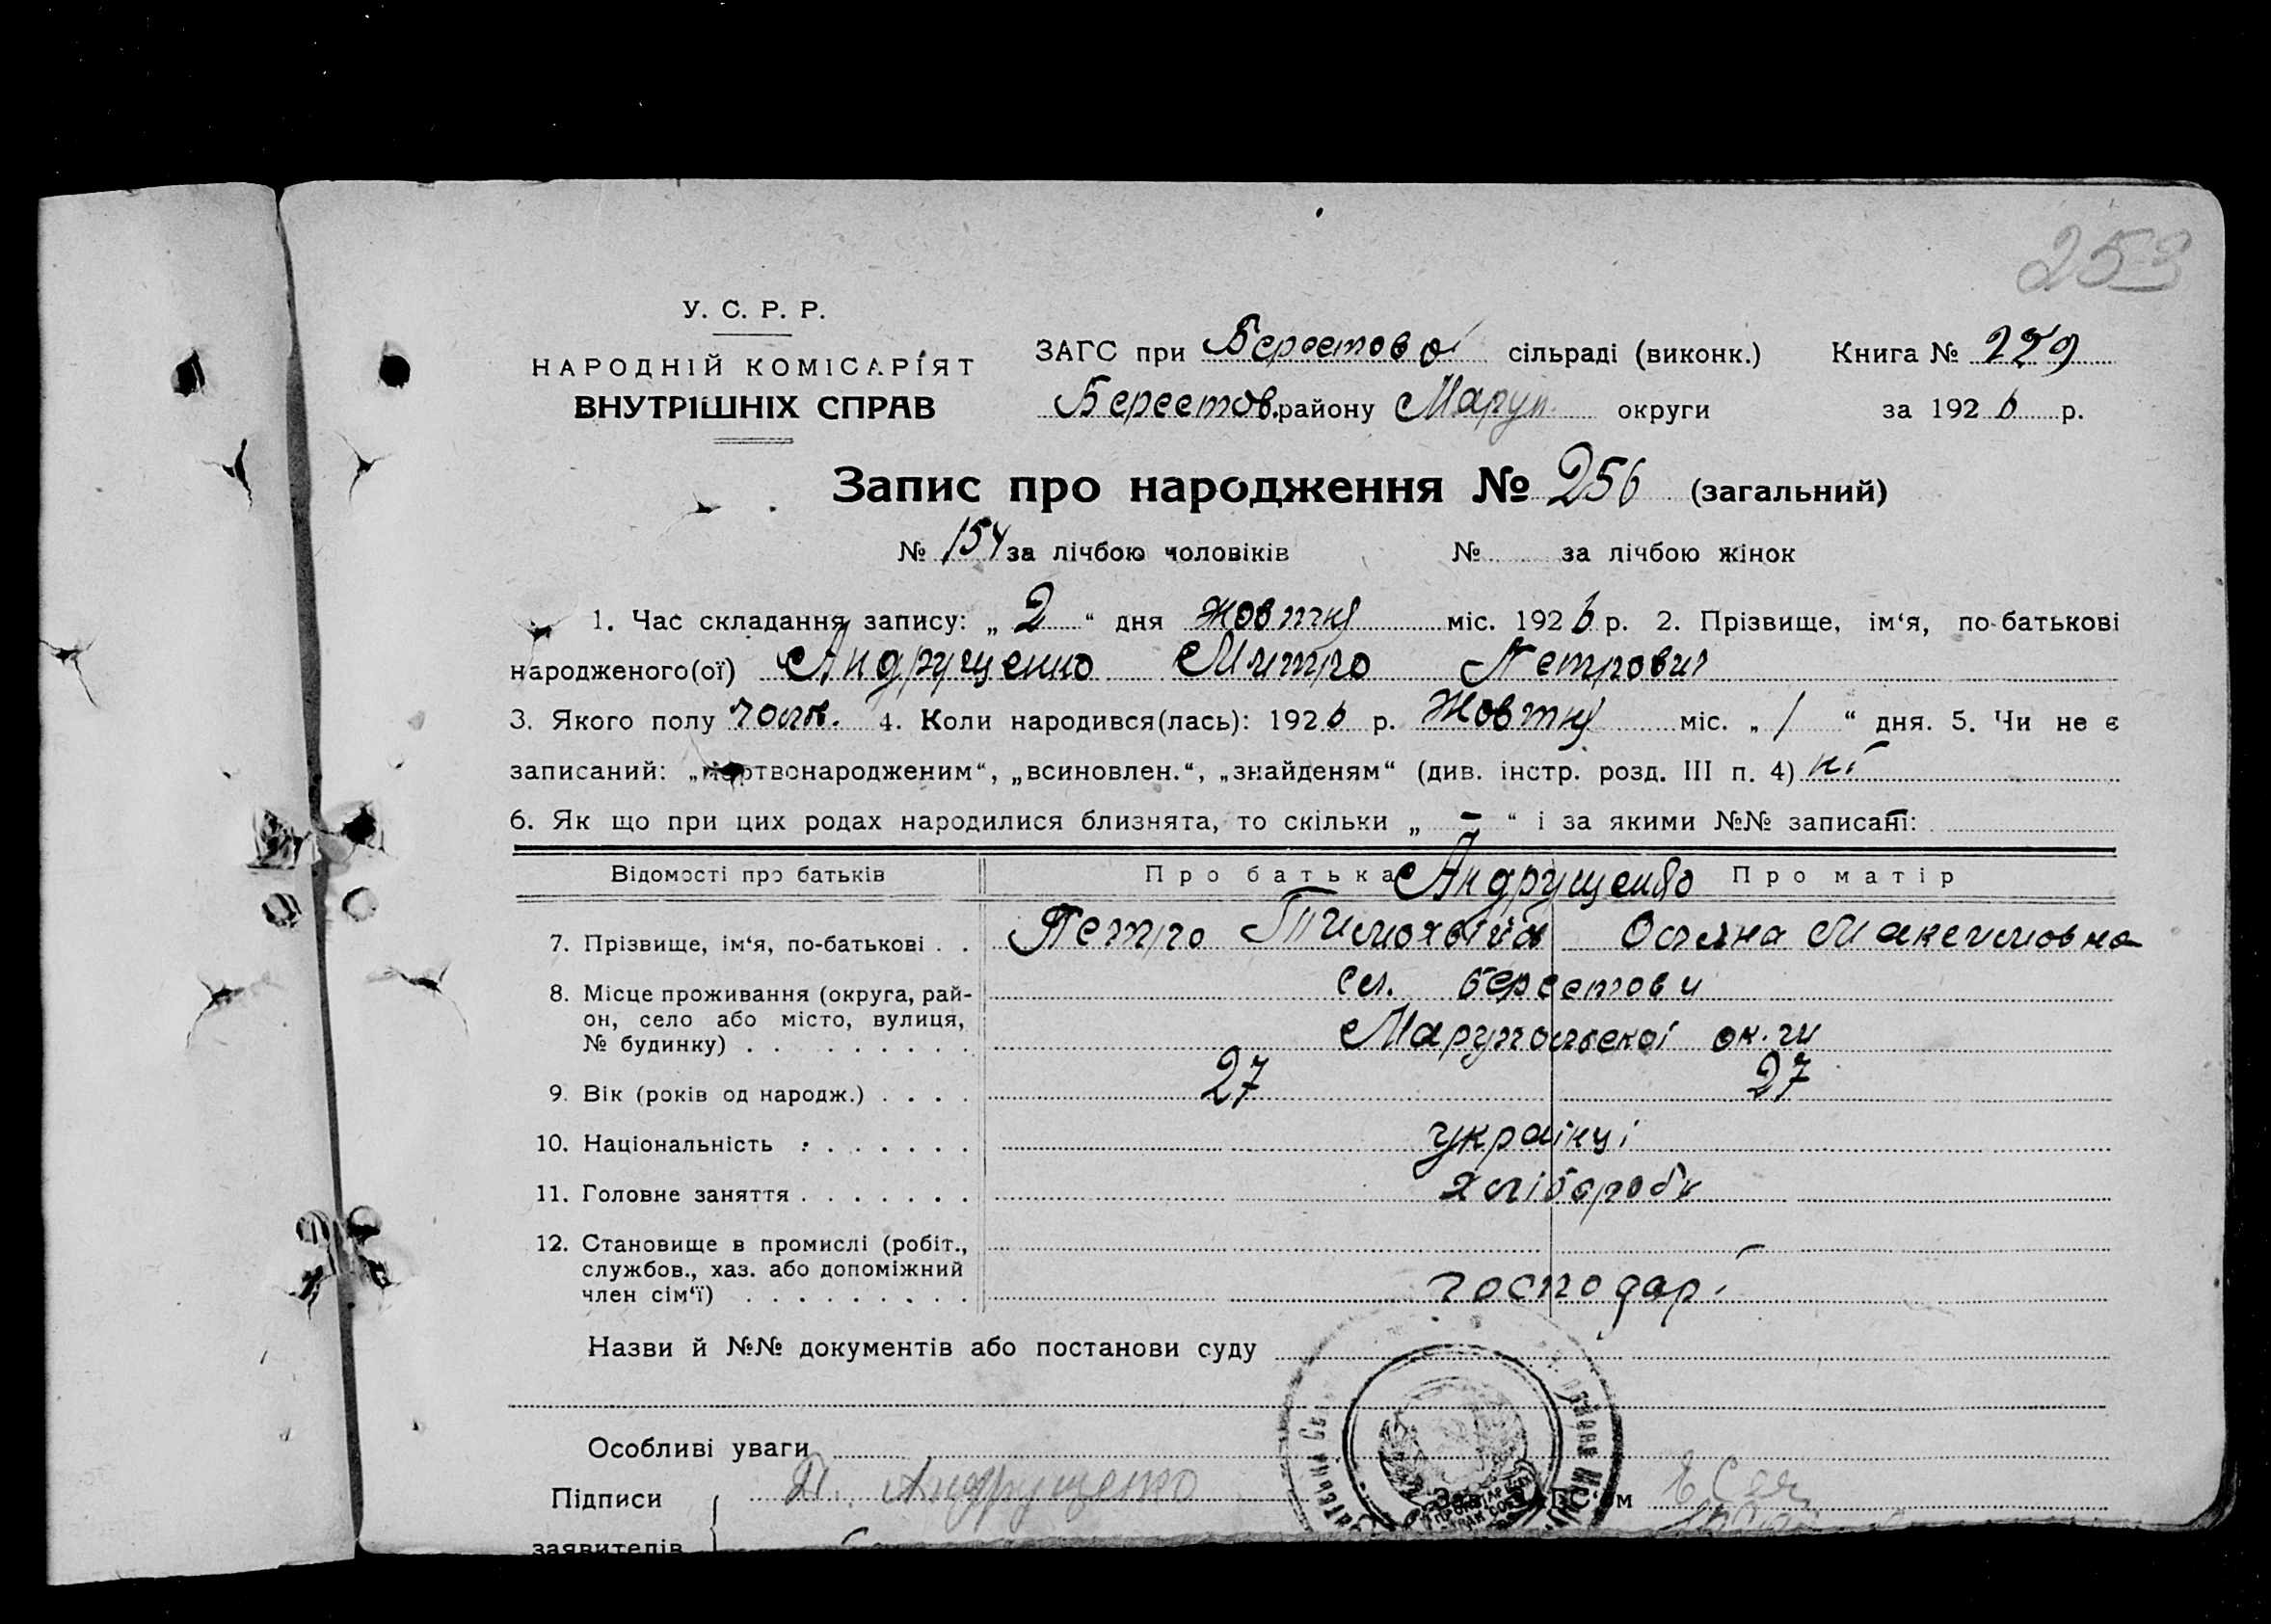 253
У. С. Р. Р.
НАРОДНІЙ КОМІСАРІЯТ
ВНУТРІШНІХ СПРАВ
ЗАГС при Берестово сільраді (виконк.) Книга № 229
Берестов. району Маруп. округи за 1926 р.
Запис про народження № 256 (загальний)
№ 154 за лічбою чоловіків № за лічбою жінок
1. Час складання запису: „ 2 “ дня жовтня міс. 1926 р. 2. Прізвище, ім‘я, по-батькові
народженого(ої) Андрущенко Митро Петрович
3. Якого полу чолов. 4. Коли народився(лась): 1926 р. Жовтня міс. „ 1 “ дня. 5. Чи не є
записаний: „мертвонародженим“, „всиновлен.“, „знайденям“ (див. інстр. розд. III п. 4) ні
6. Як що при цих родах народилися близнята, то скільки „ – “ і за якими №№ записані:
Відомості про батьків Про батька Про матір
Андрущенко
7. Прізвище, ім‘я, по-батькові . . Петро Тимохвійв Оляна Максимовна
8. Місце проживання (округа, рай-
он, село або місто, вулиця,
№ будинку) . . . . . . . . .
сел. Берестови
Марупольскої ок.ги
9. Вік (років од народж.) . . . . 27 27
10. Національність . . . . . . . українці
11. Головне заняття . . . . . . . хлібороби
12. Становище в промислі (робіт.,
службов., хаз. або допоміжний
член сім‘ї) . . . . . . . . . господарі
Назви й №№ документів або постанови суду
Особливі уваги
Підписи П. Андрущенко
заявителів